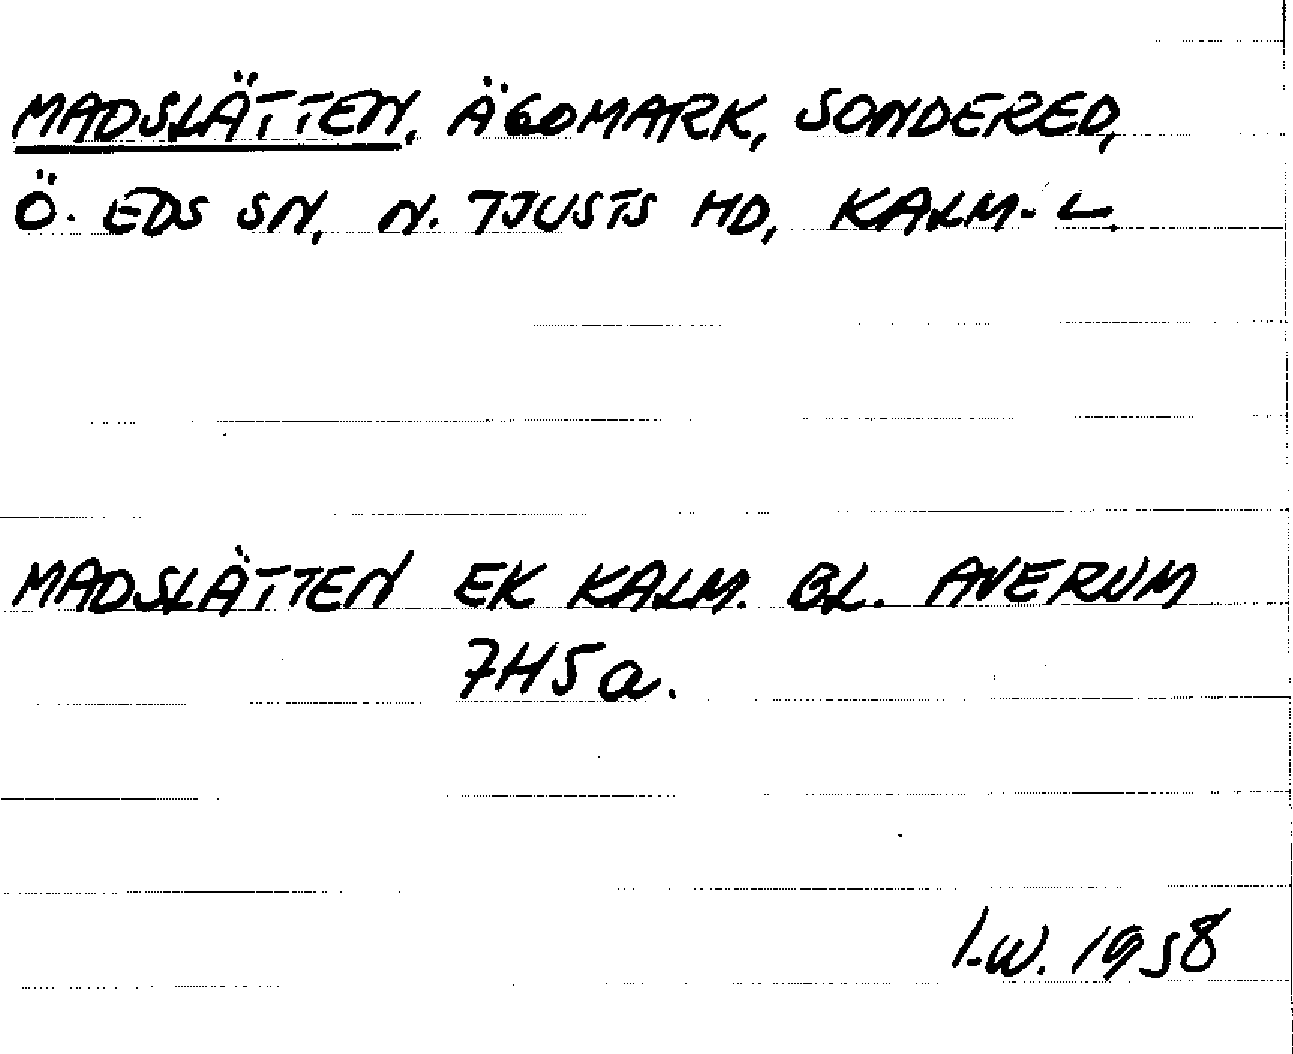 MADSLÄTTEN, ÄGOMARK, SONDERED,
Ö. EDS SN, N. TJUSTS HD, KALM. L.
MADSLÄTTEN EK KALM. BL. AVERUM
7H5a.
I.W. 1958